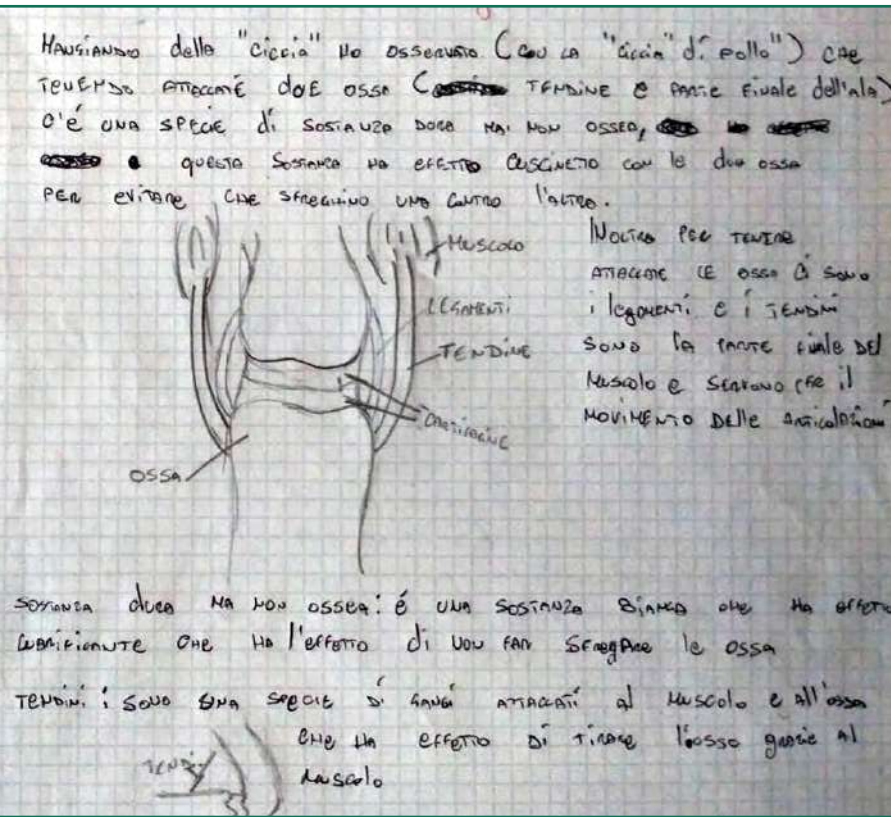 MANGIANDO della "ciccia" HO OSSERVATO (CON LA "ciccia" di pollo") CHE
TENENDO ATTACCATE dUE OSSA ( TENDINE E PARTE FINALE dell'ala)
C'é UNA SPECIE di SOSTANZA DURA MA NON OSSEA,
QUESTA SOSTANZA HA EFFETTO CUSCINETTO CON le due ossa
PER evitare CHE SFREGHINO UNO CONTRO l'ALTRO.
MUSCOLO
LEGAMENTI
TENDINE
CARTILAGINE
OSSA
INOLTRE PER TENERE
ATTACCATE LE OSSA CI SONO
i legamenti E i TENDINI
SONO la PARTE FINALE DEL
Muscolo e SERVONO PER il
MOVIMENTO DELLE ARTICOLAZIONI
SOSTANZA dura MA NON OSSEA: é UNA SOSTANZA BIANCA CHE HA EFFETTO
LUBRIFICANTE CHE HA l'EFFETTO di NON FAR SFREGARE le OSSA
TENDINI: SONO UNA SPECIE DI GANCI ATTACCATI al MUSCOLO e All'OSSA
CHE HA EFFETTO DI TIRARE l'osso grazie Al
Muscolo
TENDI